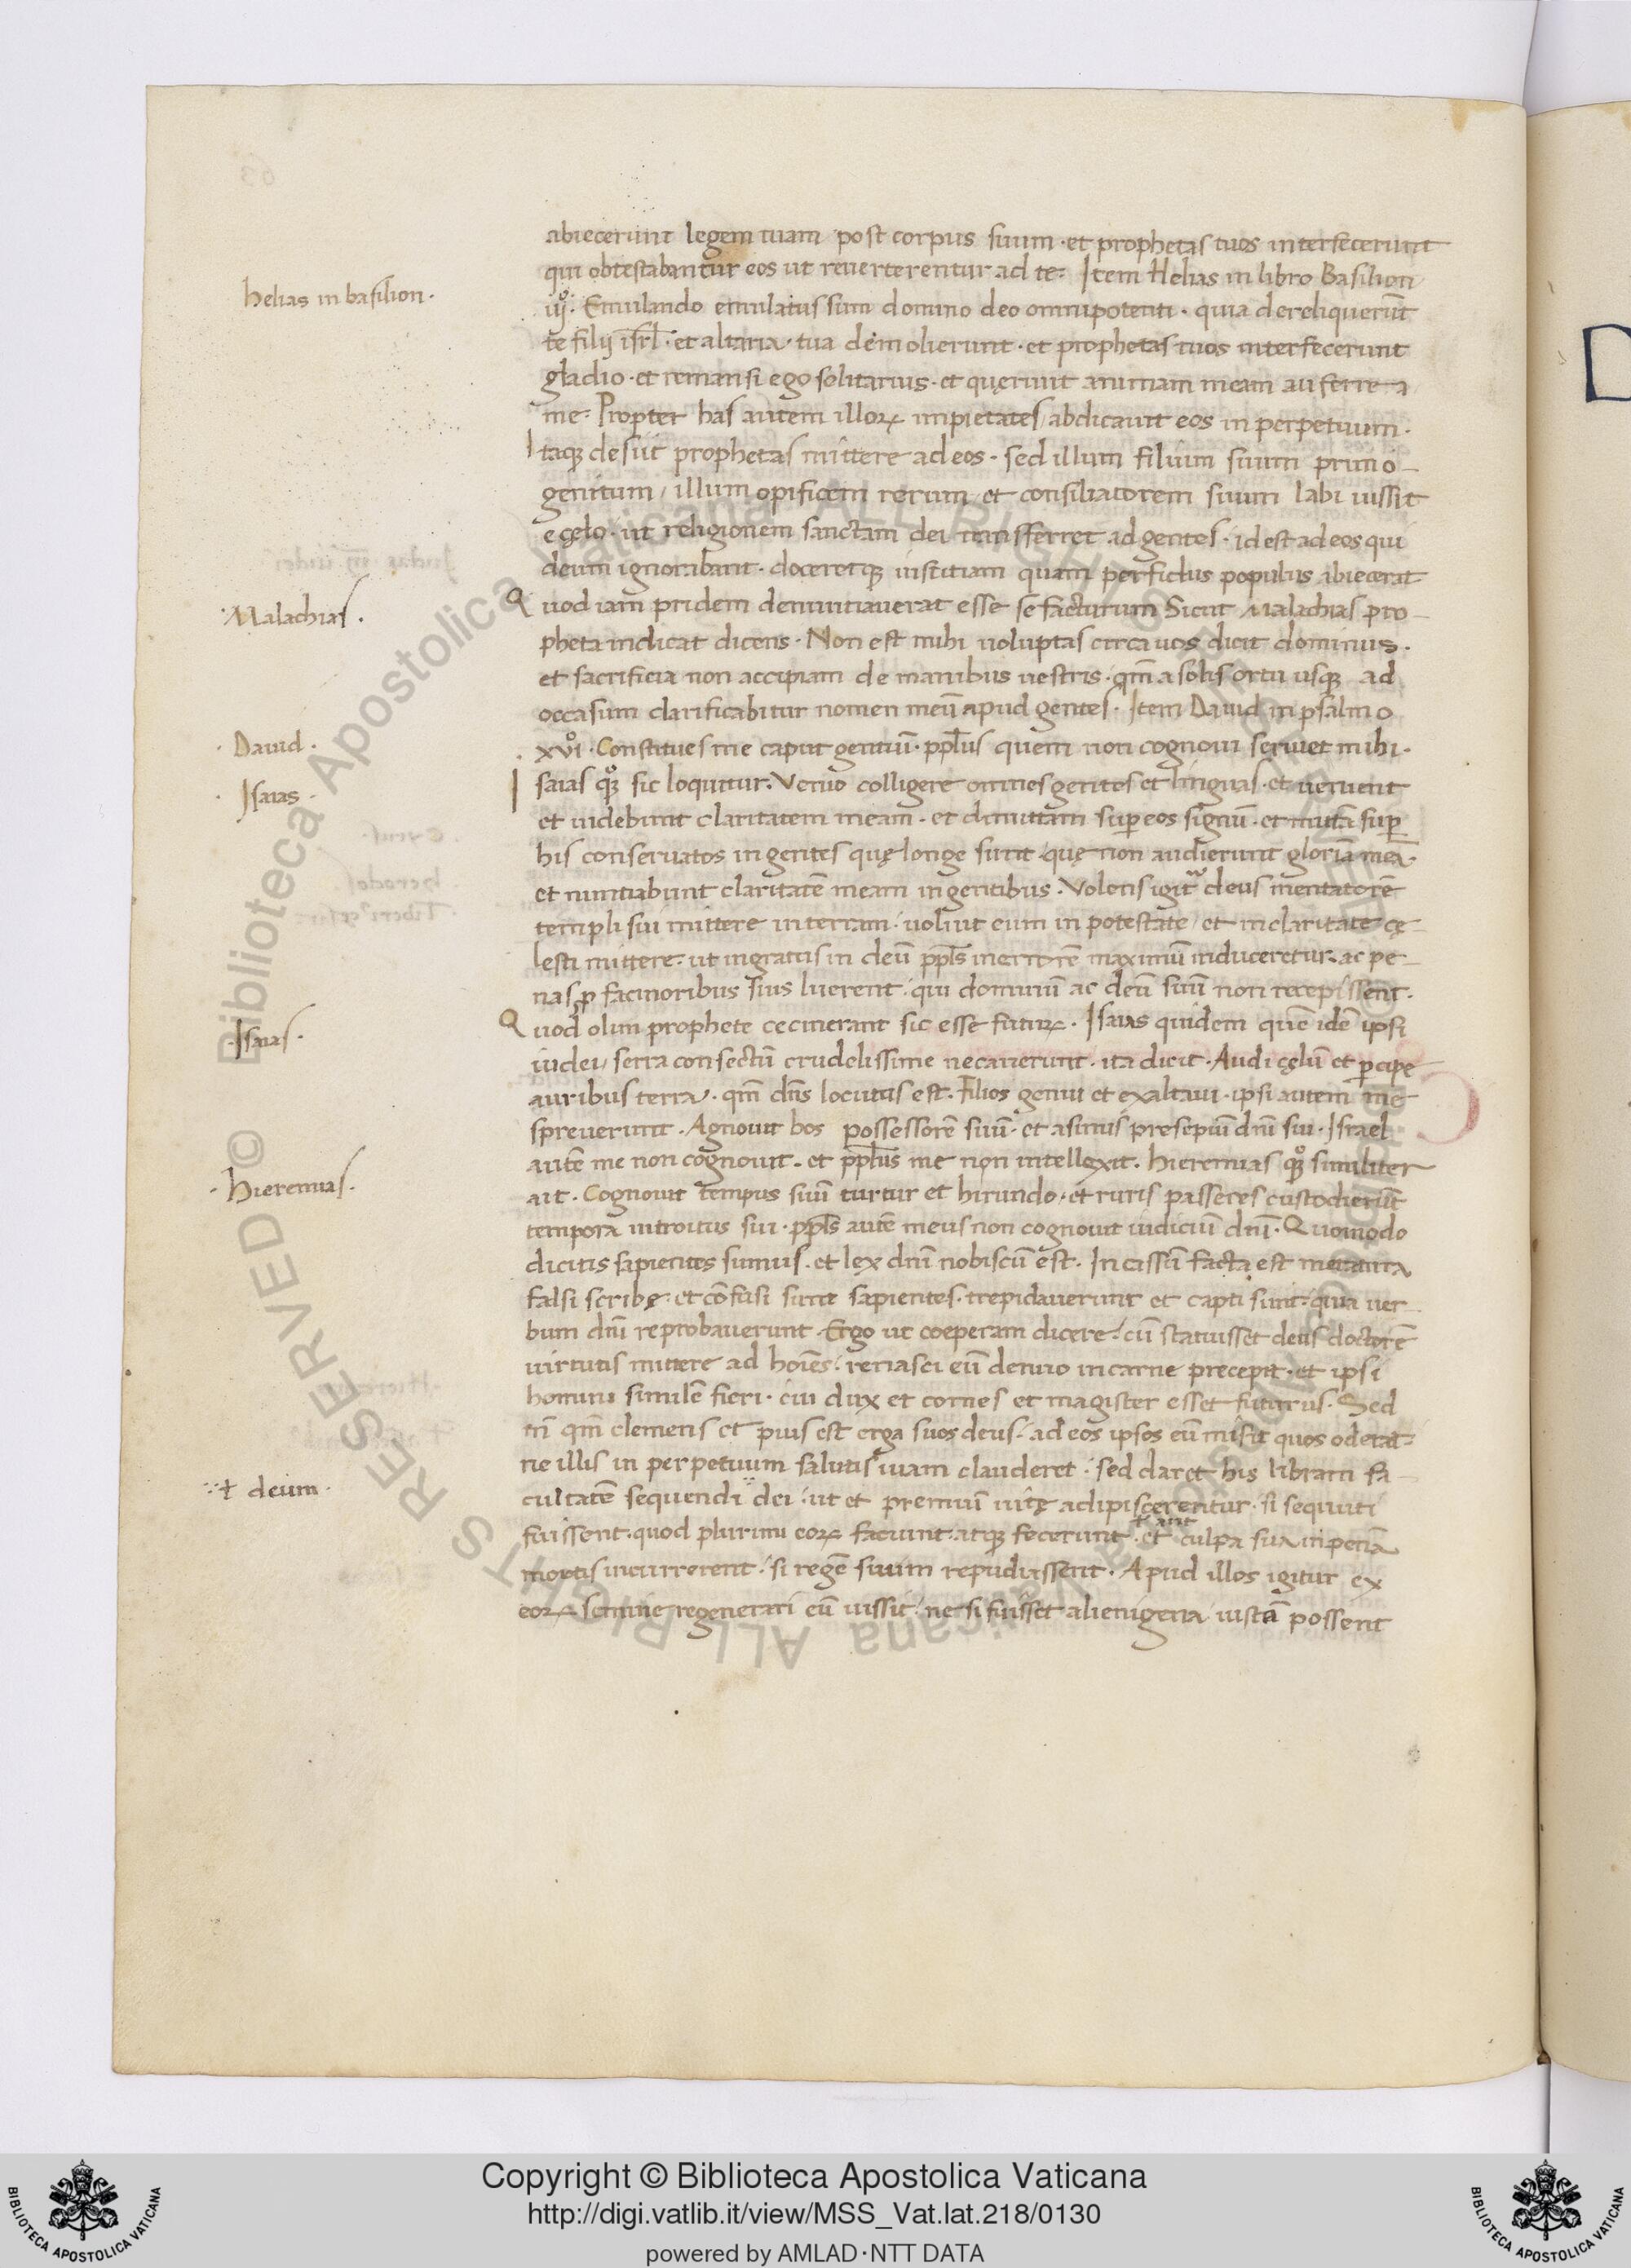 abiecerunt legem tuam post corpus suum · et prophetas tuos interfecerunt
qui obtestabantur eos ut reverterentur ad te · Item Helias in libro Basilion
helias in basilion ·
iijº · Emulando emulatus sum domino deo omnipotenti · quia dereliquerūt
te filij isrl̄ · et altaria · tua demolierunt · et prophetas tuos interfecerunt
gladio · et remansi ego solitarius · et quęrunt animam meam auferre a
me · Propter has autem illoꝝ impietates abdicavit eos in perpetuum ·
Itaqꝫ desiit prophetas mittere ad eos · sed illum filium suum primo-
genitum / illum opificem rerum et consiliatorem suum labi iussit
e cęlo · ut religionem sanctam dei transferret ad gentes · id est ad eos qui
deum ignorabant · doceretqꝫ iustitiam quam perfidus populus abiecerat
Quod iam pridem denuntiaverat esse se facturum Sicut Malachias pro-
· Malachias ·
pheta indicat dicens · Non est mihi voluptas circa vos dicit dominus ·
et sacrificia non accipiam de manibus vestris · qm̄ a solis ortu usqꝫ ad
occasum clarificabitur nomen meū apud gentes · Item David in psalmo
· David ·
xviº · Constitues me caput gentiū · pp̄lus quem non cognovi serviet mihi ·
· Isaias ·
Isaias qꝫº sic loquitur · Venio colligere omnes gentes et linguas · et venient
et videbunt claritatem meam · et dimittam suꝑ eos signū · et mittā suꝑ
his conservatos in gentes quę longe sunt · quę non audierunt gloriā meā ·
et nuntiabunt claritatē meam in gentibus · Volens igit̄ deus mentatorē
templi sui mittere in terram · voluit eum in potestate / et in claritate cę-
lesti mittere · ut ingratus in deū pp̄ls in errorē maximū induceretur · ac pe-
nas ꝓ facinoribus suis luerent · qui dominū ac deū suū non recepissent ·
Quod olim prophete cecinerant sic esse futuꝝ · Isaias quidem quē idē ipsi
· Isaias ·
iudei / serra consectū crudelissime necaverunt · ita dicit · Audi cęlū et ꝑcipe
auribus terra · qm̄ dn̄s locutus est · Filios genui et exaltavi · ipsi autem me
spreverunt · Agnovit bos possessorē suū · et asinus presepiū dn̄i sui · Israel
autē me non cognovit · et pp̄lus me non intellexit · hieremias qꝫº similiter
· hieremias ·
ait · Cognovit tempus suū turtur et hirundo · et ruris passeres custodierūt
tempora introitus sui · pp̄ls autē meus non cognovit iudiciū dn̄i · Quomodo
dicitis sapientes sumus · et lex dn̄i nobiscū est · In cassū facta est metanta
falsi scribę · et cōfusi sunt sapientes · trepidaverunt et capti sunt · quia ver-
bum dn̄i reprobaverunt · Ergo ut coeperam dicere · cū statuisset deus doctorē
virtutis mittere ad hoīes · renasci eū denuo in carne precepit · et ipsi
homini similē fieri · cui dux et comes et magister esset futurus · Sed
tn̄ qm̄ clemens et pius est erga suos deus · ad eos ipsos eū misit quos oderat ·
ne illis in perpetuum salutis viam clauderet · sed daret his libram fa-
∵ ł deum ·
cultatē sequendi dei · ut et premiū vitę adipiscerentur · si sequuti
ł aut
fuissent · quod plurimi eoꝝ faciunt atqꝫ fecerunt · et culpa sua in penā
mortis incurrerent · si regē suum repudiassent · Apud illos igitur ex
eoꝝ semine regenerari eū iussit · ne si fuisset alienigena iustā possent
Copyright © Biblioteca Apostolica Vaticana
http://digi.vatlib.it/view/MSS_Vat.lat.218/0130
powered by AMLAD·NTT DATA
BIBLIOTECA APOSTOLICA VATICANA
BIBLIOTECA APOSTOLICA VATICANA